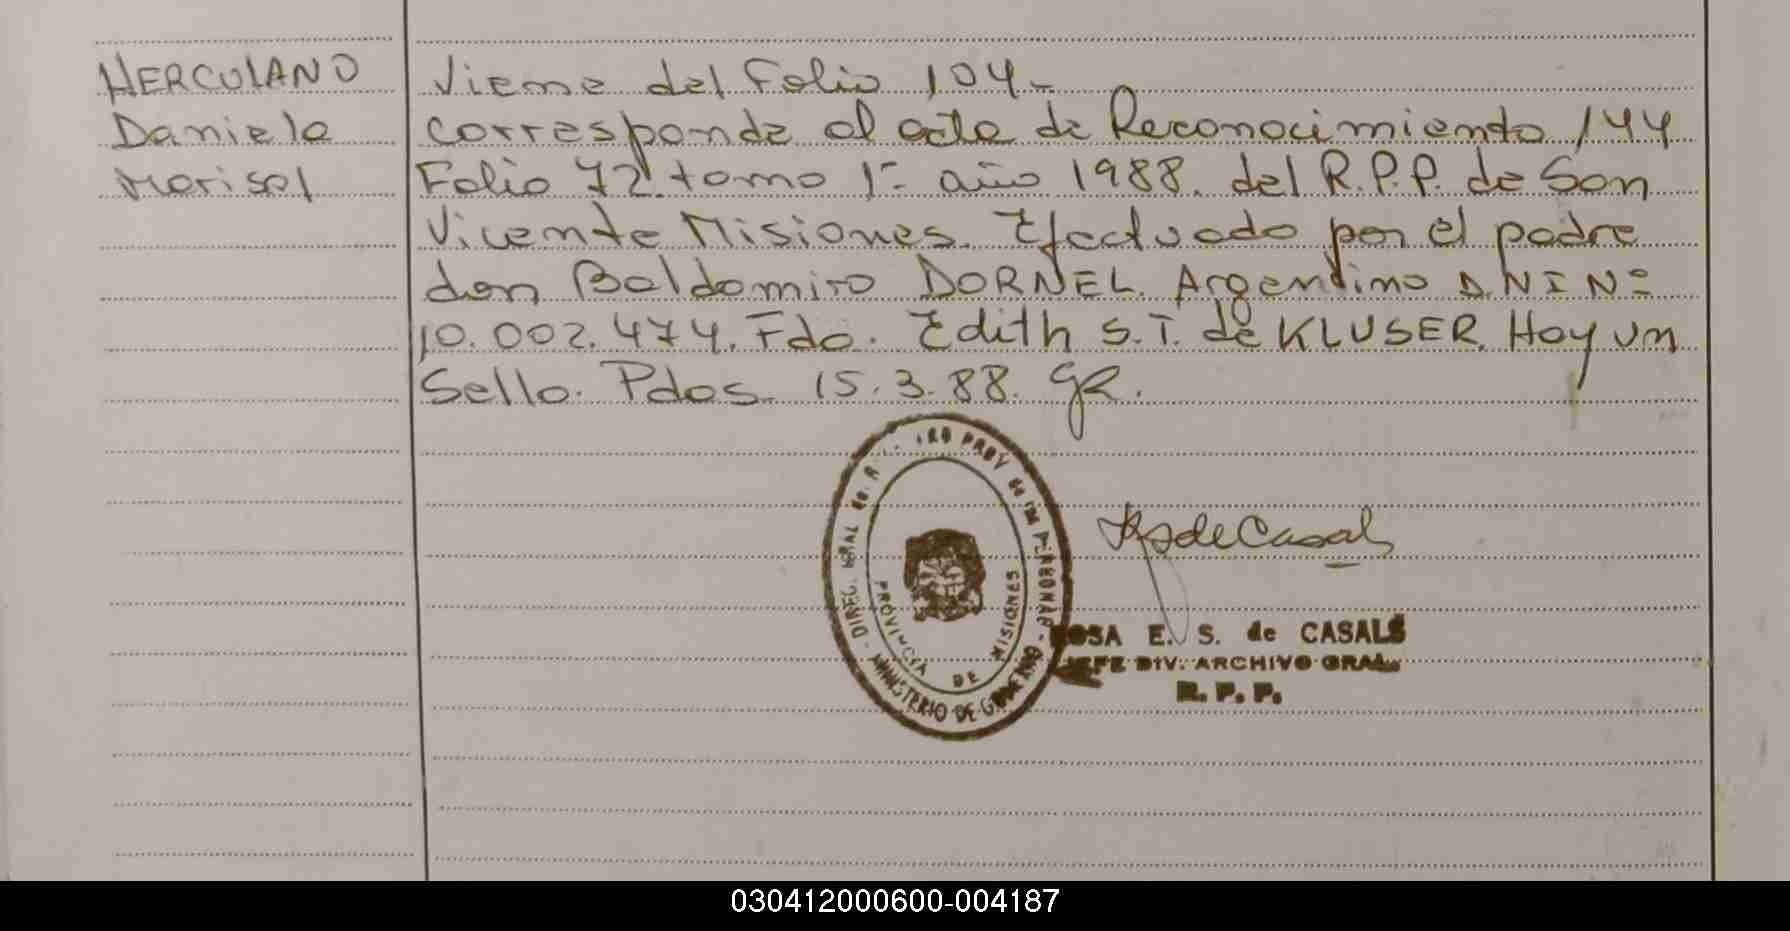 HERCULANO
Daniela
Marisol
Viene del Folio 104-
corresponde al acta de Reconocimiento 144
Folio 72. tomo 1º- año 1988. del R.P.P. de San
Vicente Misiones. Efectuado por el padre
don Baldomiro DORNEL. Argentino D.N.I Nº
10.002.474. Fdo. Edith S.T. de KLUSER. Hay un
Sello. Pdas. 15.3.88. gR.
DIREC. GRAL de R PROV de las PERSONAS - MINISTERIO DE GOBIERNO -
PROVINCIA DE MISIONES
RSdeCasals
ROSA E. S. de CASALS
JEFE DIV. ARCHIVO GRAL.
R. P. P.
030412000600-004187